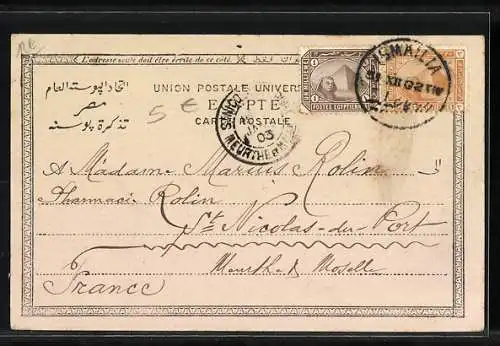 L'adresse seule doit être écrite de ce côté.
اتحاد البوستة العام
مصر
تذكرة بوسته
UNION POSTALE UNIVERSE
EGYPTE
CARTE POSTALE
5 €
1
POSTES EGYPTIENNES
ISMAILIA
ST NICO
03
MEURTHE
A Madame Marius Rolin
Pharmacie Rolin
St Nicolas-du-Port
Meurthe & Moselle
France